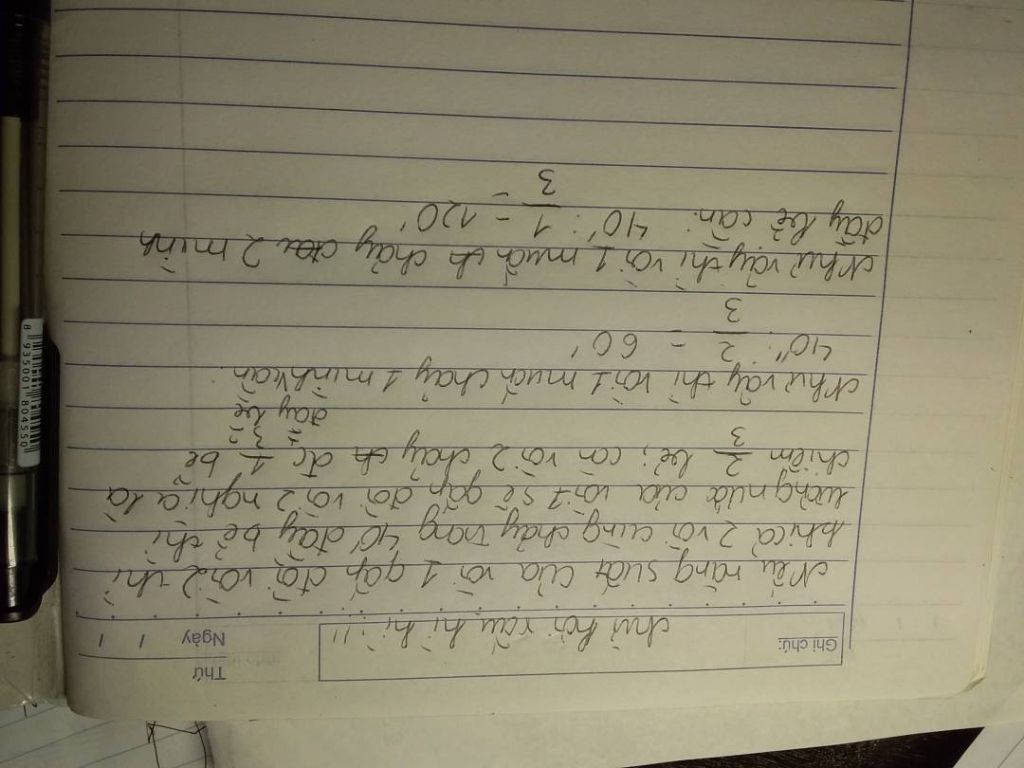 Thứ
Ngày / /
Ghi chú:
chữ hơi xấu hi hi !!!
Nếu năng suất của vòi 1 gấp đôi vòi 2 thì
khi cả 2 vòi cùng chảy trong 40' đầy bể thì
lượng nước của vòi 1 sẽ gấp đôi vòi 2 nghĩa là
chiếm 2/3 bể; còn vòi 2 chảy đc 1/3 bể
đầy bể
Như vậy thì vòi 1 muốn chảy 1 mình cần:
40' : 2/3 = 60'
Như vậy thì vòi 1 muốn chảy 2 mình
đầy bể cần: 40' : 1/3 = 120'
8 935001 804550